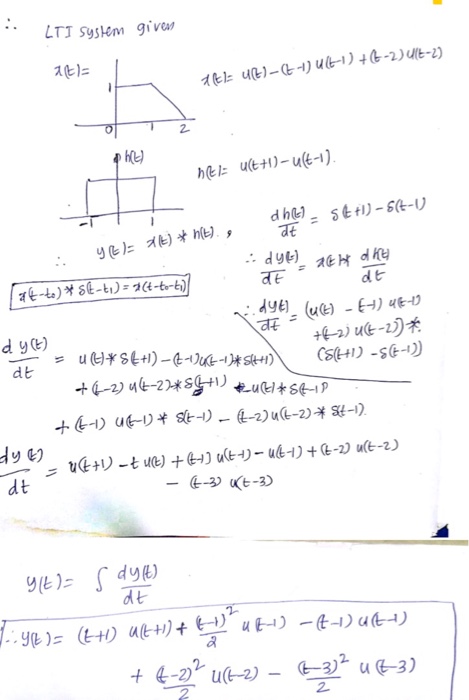 ∴ LTI system given
x(t)=
1
0 1 2
x(t)= u(t)-(t-1)u(t-1)+(t-2)u(t-2)
h(t)
-1 1
h(t)= u(t+1)-u(t-1).
∴ y(t)= x(t) * h(t).,
dh(t)/dt = δ(t+1)-δ(t-1)
x(t-t₀)*δ(t-t₁)=x(t-t₀-t₁)
∴ dy(t)/dt = x(t)* dh(t)/dt
∴ dy(t)/dt = (u(t) - (t-1) u(t-1)
+(t-2) u(t-2))*
(δ(t+1) -δ(t-1))
dy(t)/dt = u(t)*δ(t+1)-(t-1)u(t-1)*δ(t+1)
+(t-2)u(t-2)*δ(t+1) -u(t)*δ(t-1)
+(t-1) u(t-1)* δ(t-1) - (t-2)u(t-2)* δ(t-1).
dy(t)/dt = u(t+1)-t u(t)+(t-1)u(t-1)-u(t-1)+(t-2) u(t-2)
- (t-3) u(t-3)
y(t)= ∫ dy(t)/dt
∴ y(t)= (t+1) u(t+1)+ (t-1)²/2 u(t-1) -(t-1)u(t-1)
+ (t-2)²/2 u(t-2) - (t-3)²/2 u(t-3)